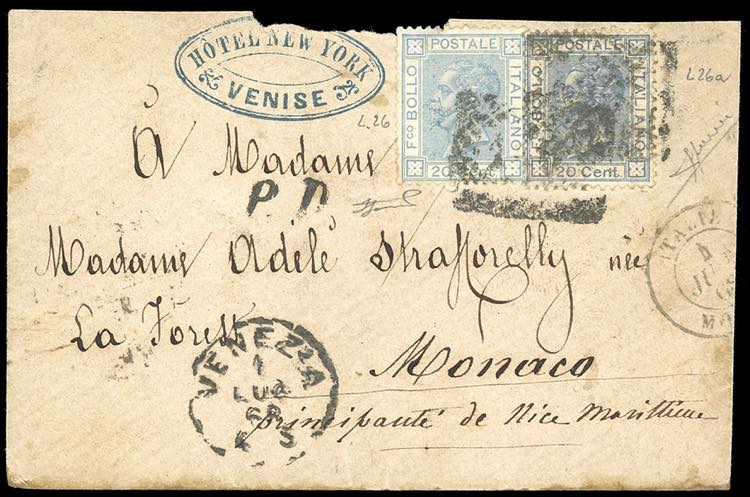 HÔTEL NEW YORK
VENISE
POSTALE
F.co BOLLO
ITALIANO
20 Cent.
POSTALE
F.co BOLLO
ITALIANO
20 Cent.
L.26
L26a
À Madame
P.D
Madame Adèle Strafforelly née
La Forest
VENEZIA
1
LUG
68
S
ITALIE
JU
Monaco
principauté de Nice Marittime